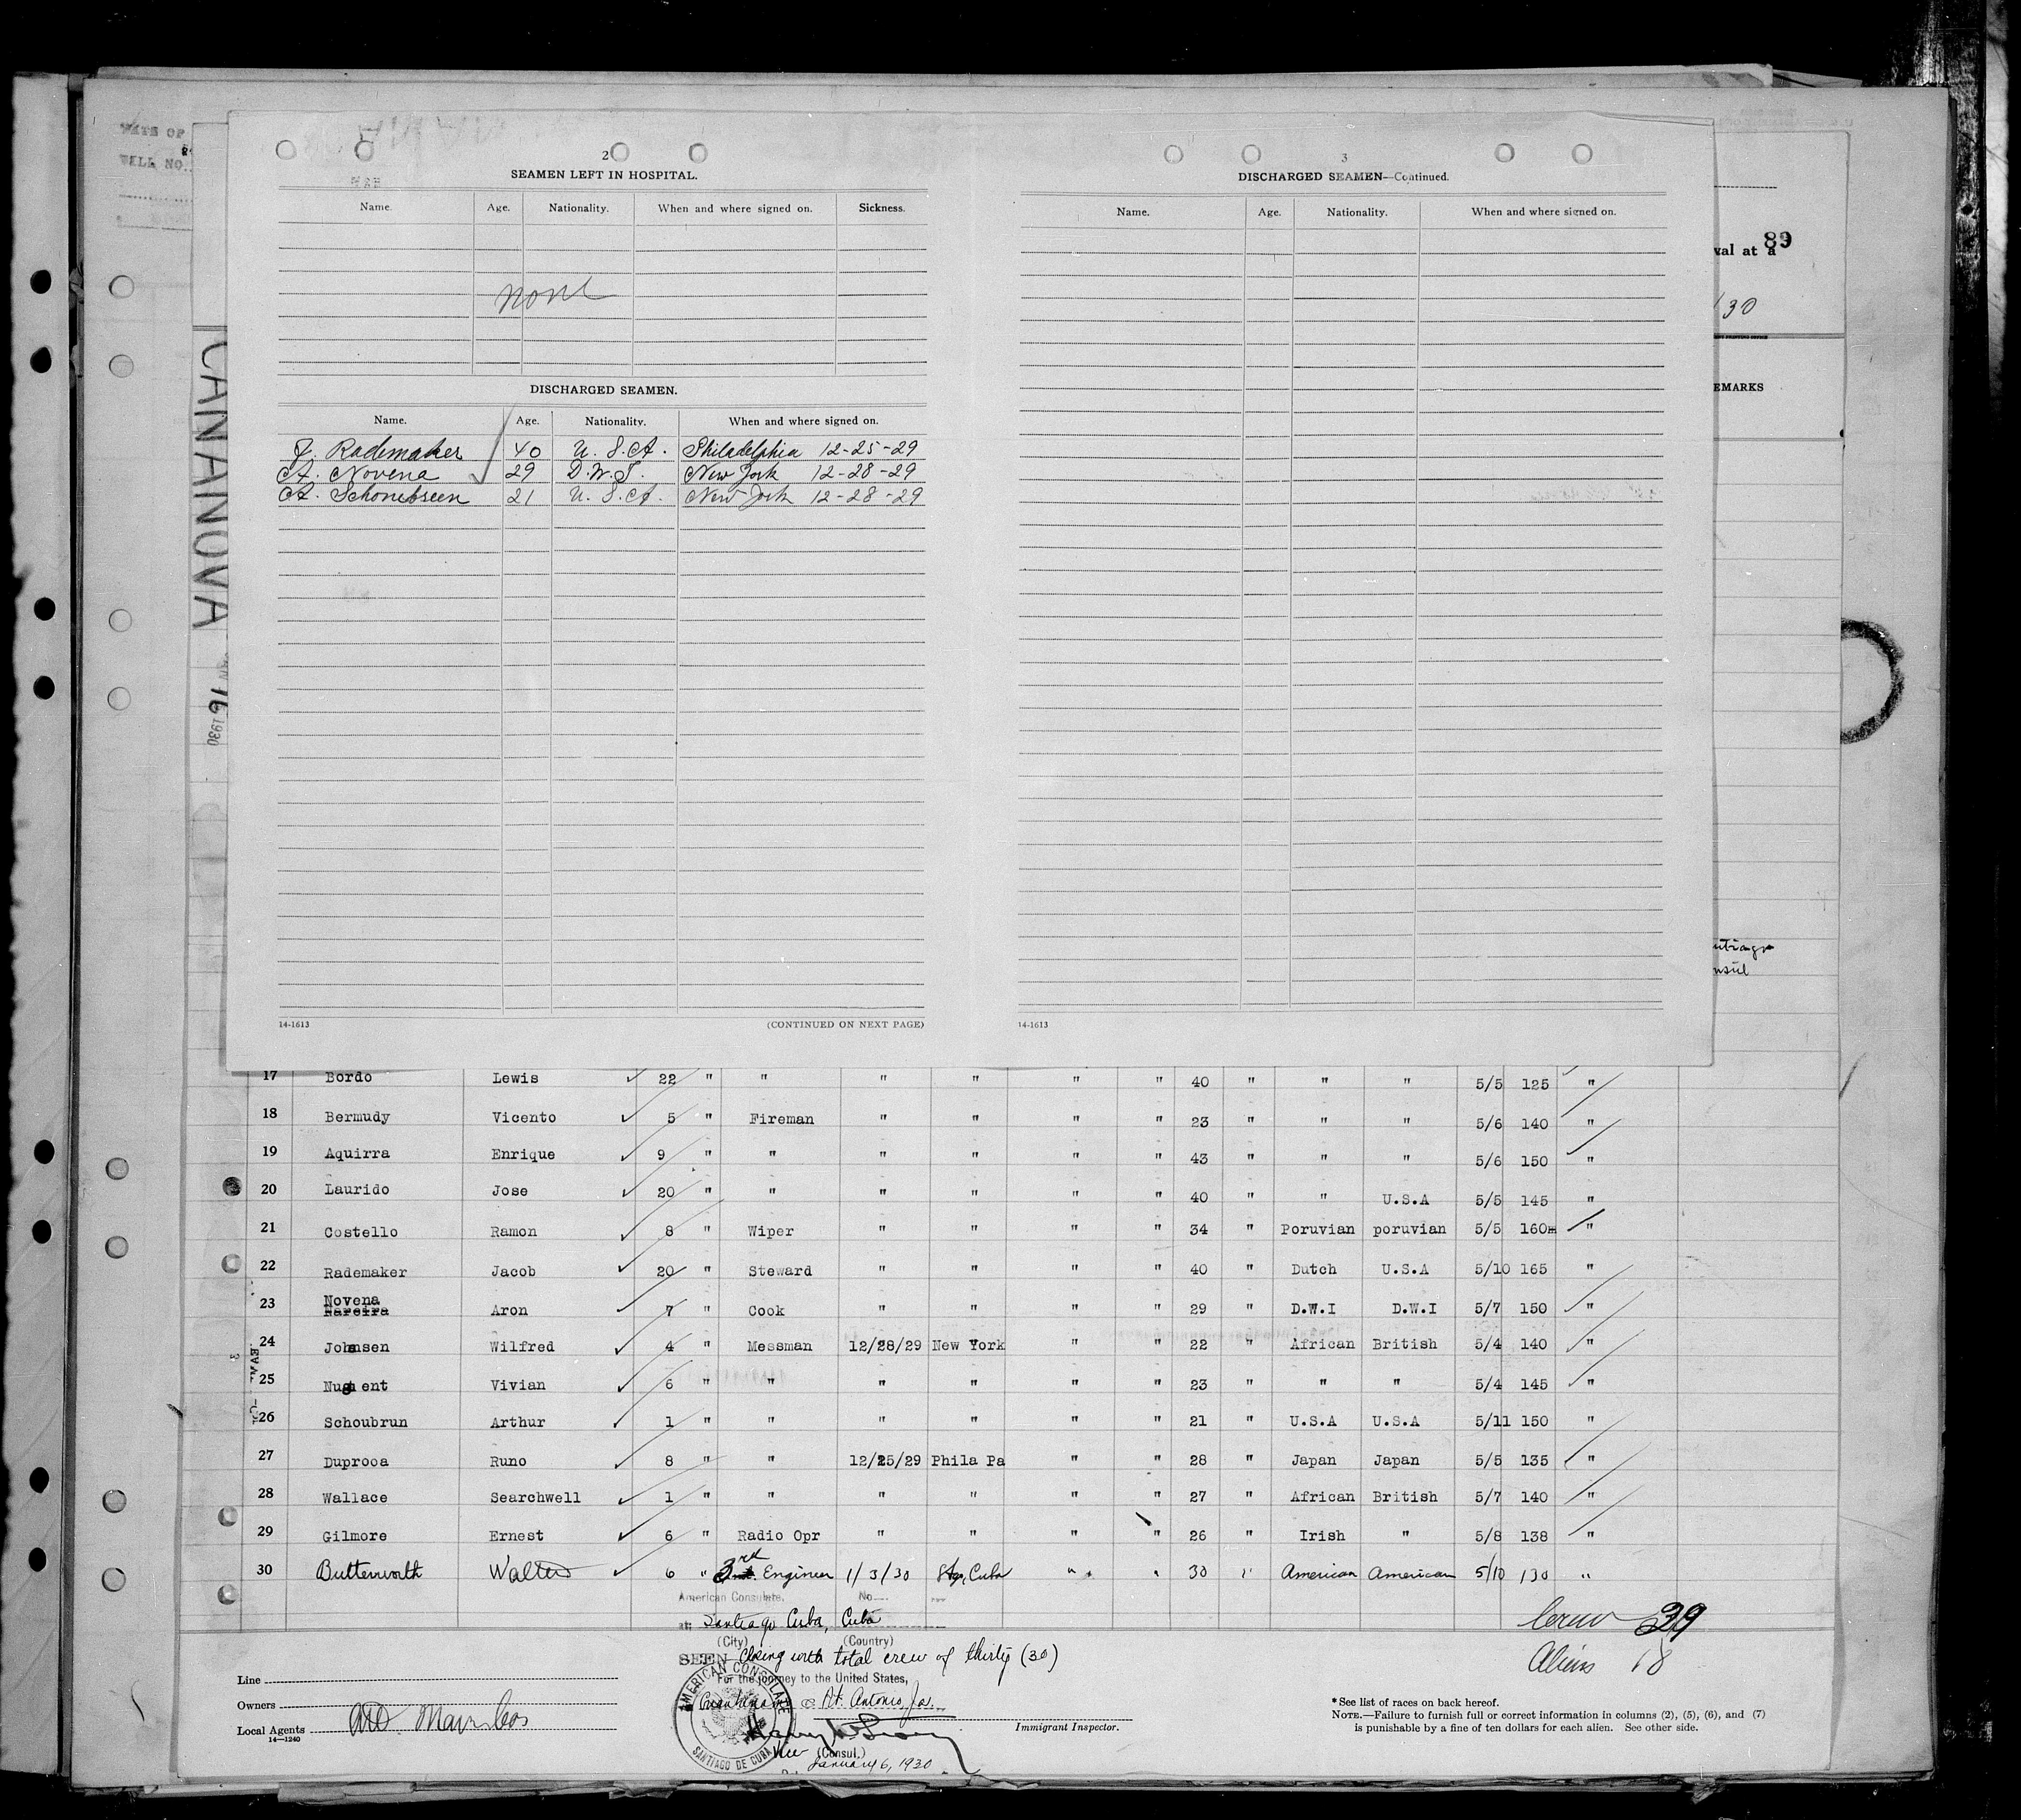 2
SEAMEN LEFT IN HOSPITAL.
Name. Age. Nationality. When and where signed on. Sickness.
none
DISCHARGED SEAMEN.
Name. Age. Nationality. When and where signed on.
J. Rademaker 40 U.S.A. Philadelphia 12-25-29
A. Novena 29 D.W.I. New York 12-28-29
A. Schonebseen 21 U.S.A. New York 12-28-29
14-1613 (CONTINUED ON NEXT PAGE)
3
DISCHARGED SEAMEN—Continued.
Name. Age. Nationality. When and where signed on.
14-1613
CANANOVA
16 1930
val at a
89
30
EMARKS
17 Bordo Lewis 22 " " " " " " 40 " " " 5/5 125 "
18 Bermudy Vicento 5 " Fireman " " " " 23 " " " 5/6 140 "
19 Aquirra Enrique 9 " " " " " " 43 " " " 5/6 150 "
20 Laurido Jose 20 " " " " " " 40 " " U.S.A 5/5 145 "
21 Costello Ramon 8 " Wiper " " " " 34 " Poruvian poruvian 5/5 160 "
22 Rademaker Jacob 20 " Steward " " " " 40 " Dutch U.S.A 5/10 165 "
23 Novena Aron 7 " Cook " " " " 29 " D.W.I D.W.I 5/7 150 "
24 Johnsen Wilfred 4 " Messman 12/28/29 New York " " 22 " African British 5/4 140 "
25 Nugent Vivian 6 " " " " " " 23 " " " 5/4 145 "
26 Schoubrun Arthur 1 " " " " " " 21 " U.S.A U.S.A 5/11 150 "
27 Duprooa Runo 8 " " 12/25/29 Phila Pa " " 28 " Japan Japan 5/5 135 "
28 Wallace Searchwell 1 " " " " " " 27 " African British 5/7 140 "
29 Gilmore Ernest 6 " Radio Opr " " " " 26 " Irish " 5/8 138 "
30 Butterworth Walter 6 " 3rd Engineer 1/3/30 Stgo, Cuba " " 30 " American American 5/10 130 "
American Consulate, No.
at Santiago Cuba, Cuba
(City) (Country)
SEEN Closing with total crew of thirty (30)
For the journey to the United States,
Guantanamo or Pt. Antonio, Ja.
Vice (Consul.)
January 6, 1930
AMERICAN CONSULATE
SANTIAGO DE CUBA
Immigrant Inspector.
Crew 29
Aliens 18
Line
Owners
Local Agents
14—1240
*See list of races on back hereof.
NOTE.—Failure to furnish full or correct information in columns (2), (5), (6), and (7)
is punishable by a fine of ten dollars for each alien. See other side.